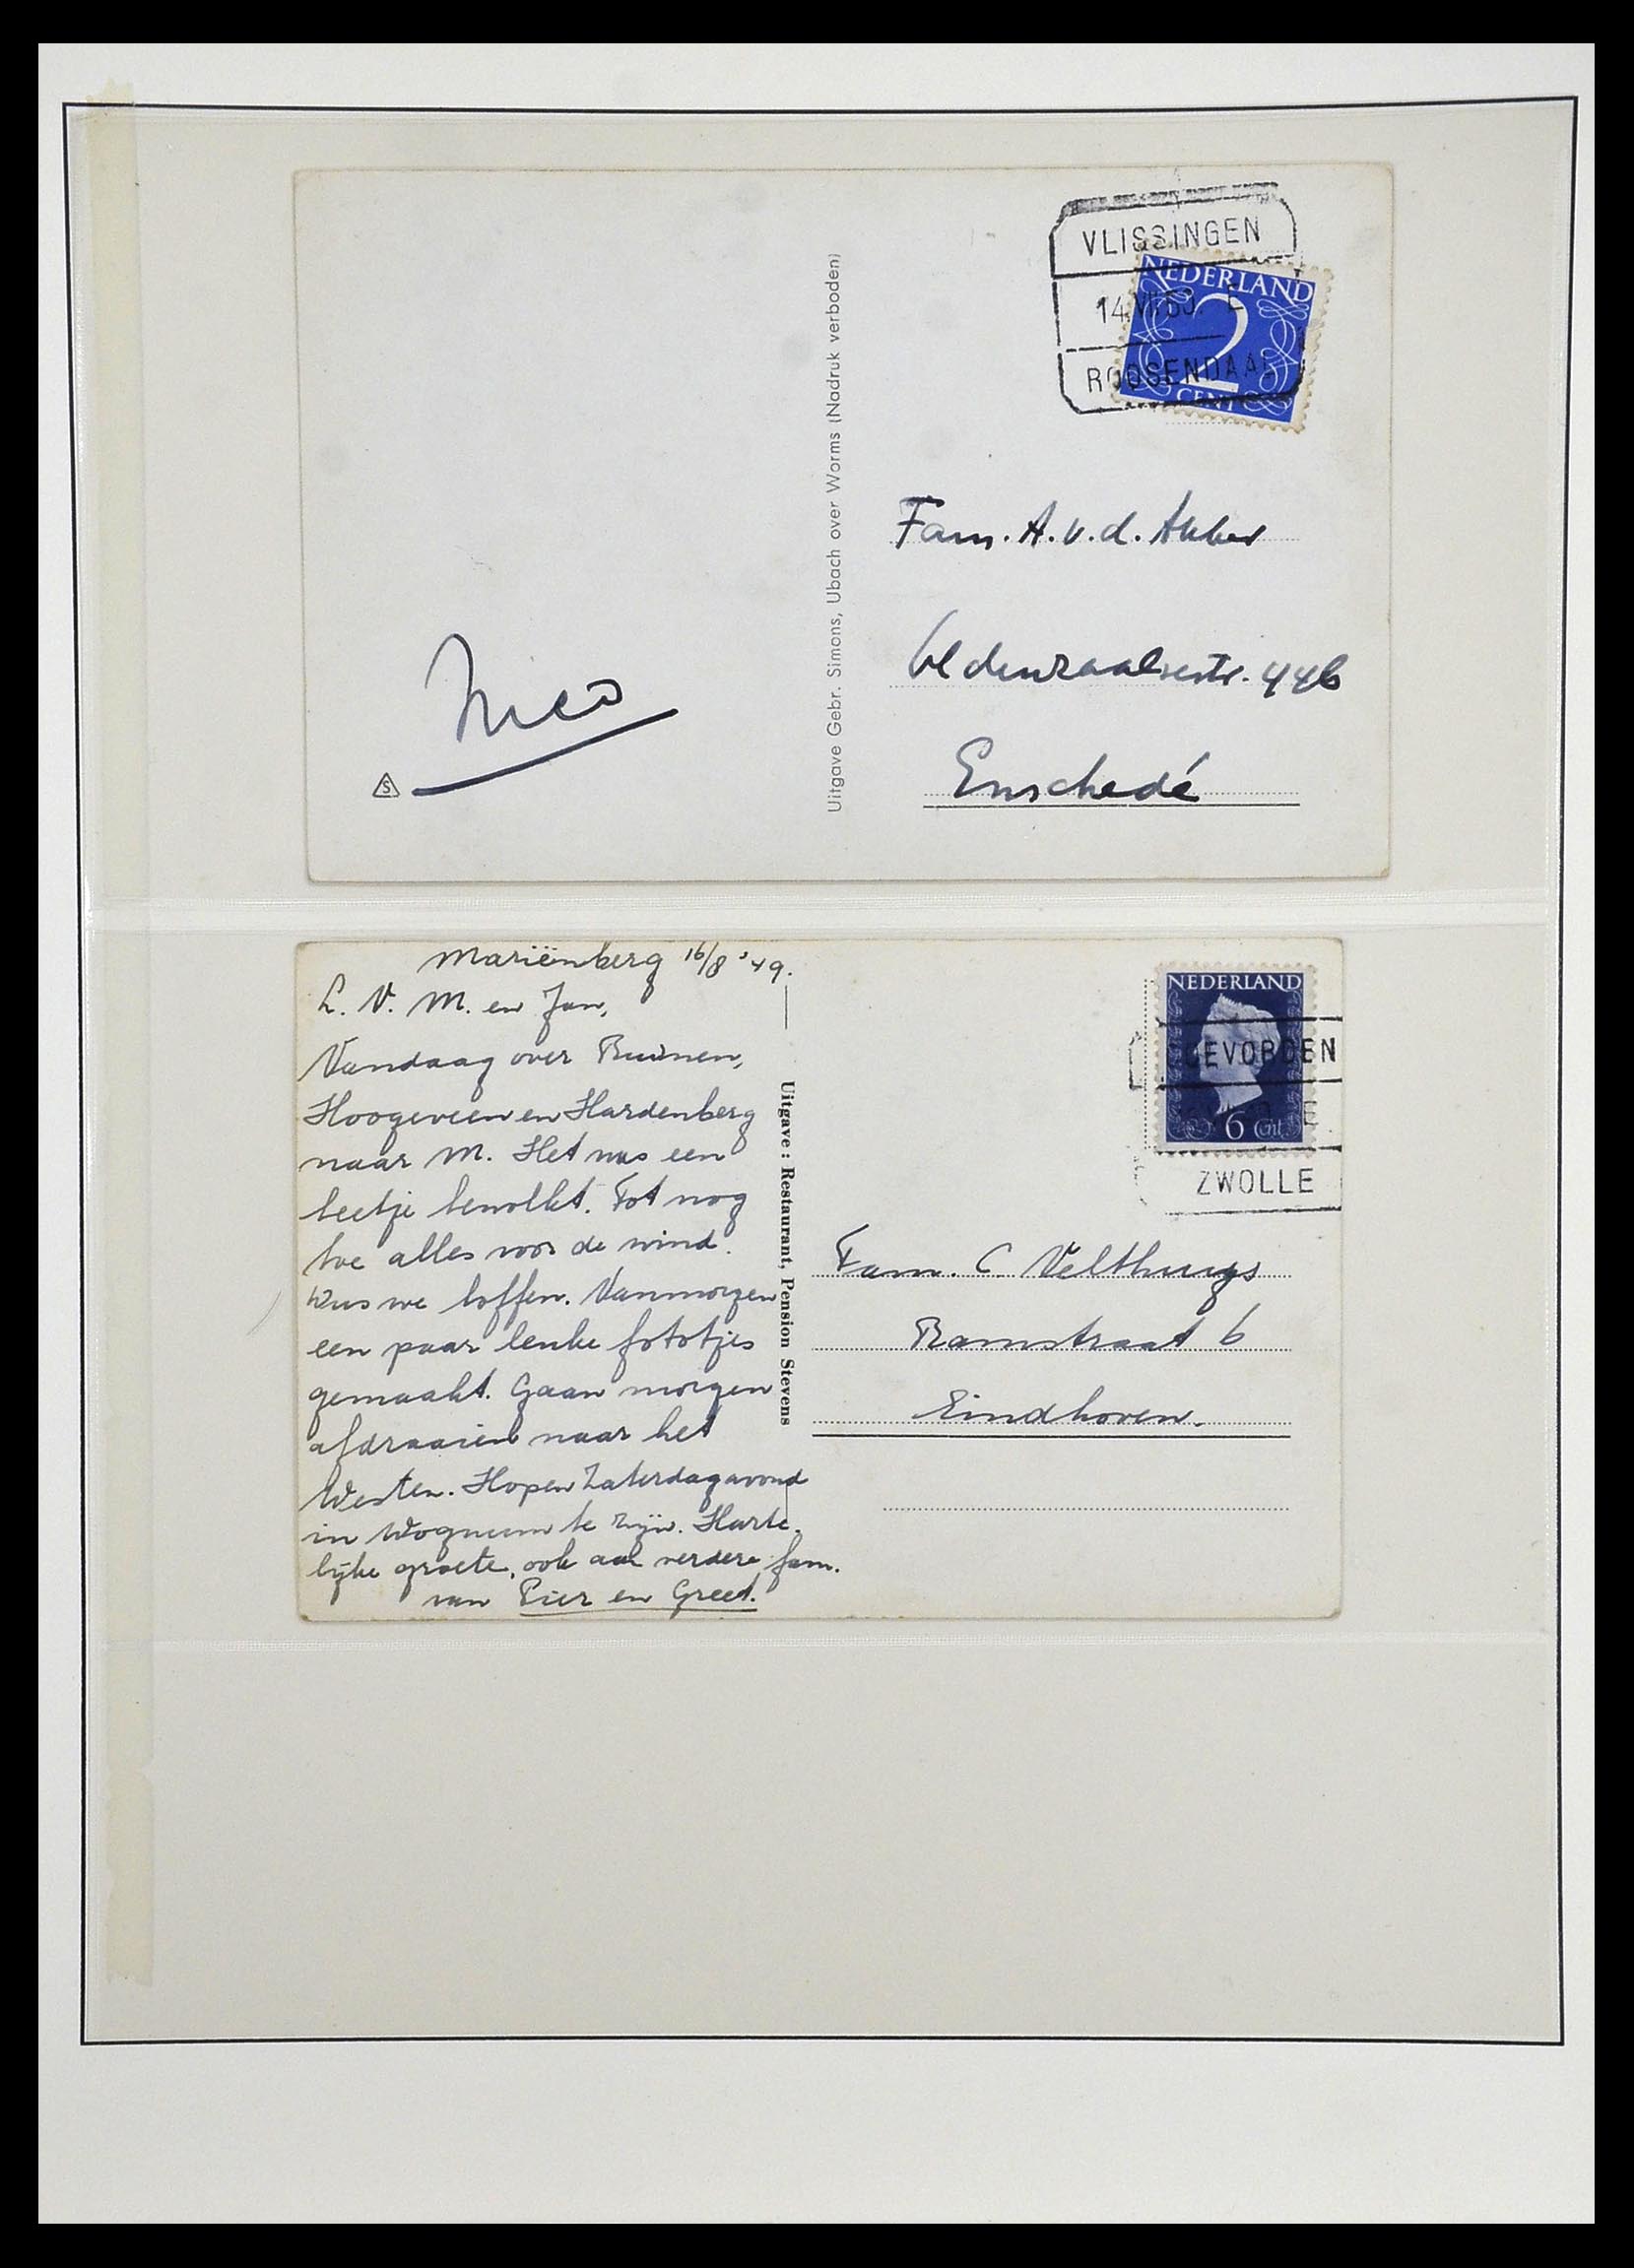 VLISSINGEN
14.VII.53. E
ROOSENDAAL
NEDERLAND
2
CENT
Uitgave Gebr. Simons, Ubach over Worms (Nadruk verboden)
Fam. A. v. d. Akker
Oldenzaalsestr. 446
Enschedé
Nico
S
Mariënberg 16/8 '49.
L. V. M. en Jan,
Vandaag over Ruinen,
Hoogeveen en Hardenberg
naar M. Het was een
beetje bewolkt. Tot nog
toe alles voor de wind.
Dus we boffen. Vanmorgen
een paar leuke fototjes
gemaakt. Gaan morgen
afdraaien naar het
Westen. Hopen Zaterdagavond
in Wognum te zijn. Harte-
lijke groete, ook aan verdere fam.
van Pier en Greet.
Uitgave: Restaurant, Pension Stevens
NEDERLAND
6 Cent
COEVORDEN
E
ZWOLLE
Fam. C Velthuys
Ramstraat 6
Eindhoven.